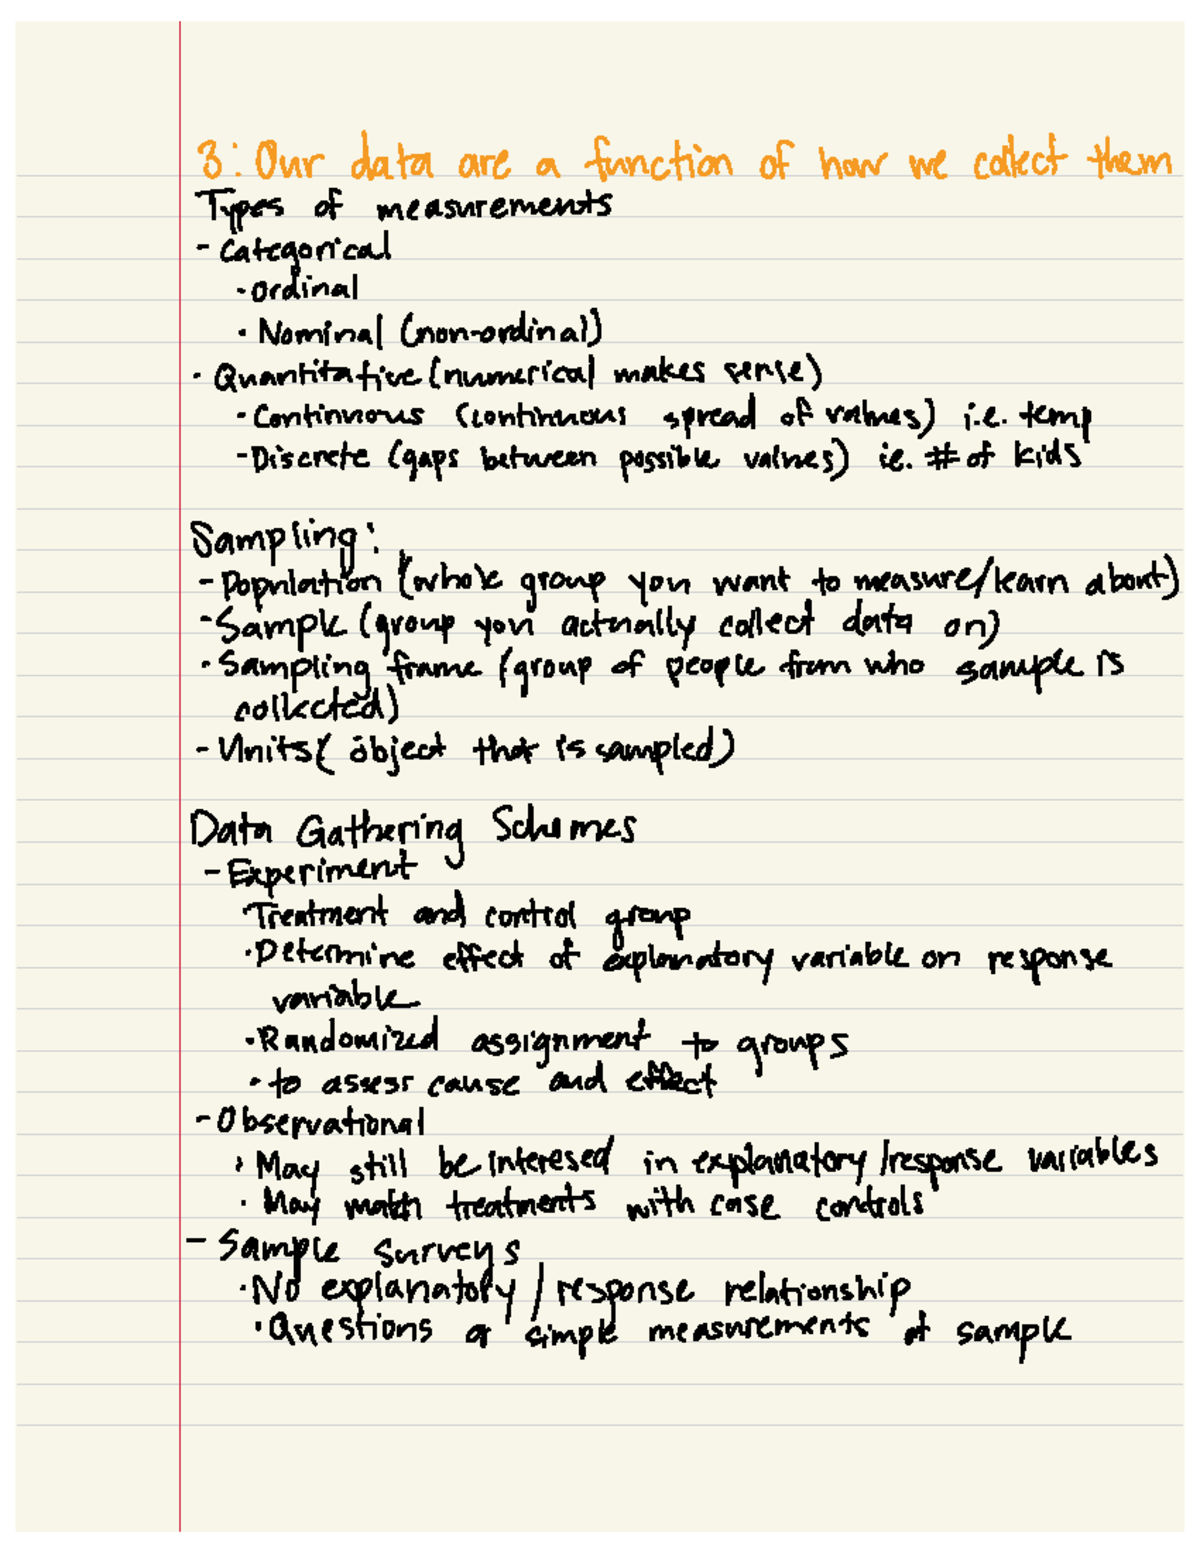 3: Our data are a function of how we collect them
Types of measurements
- Categorical
· Ordinal
· Nominal (non-ordinal)
· Quantitative (numerical makes sense)
- Continuous (continuous spread of values) i.e. temp
- Discrete (gaps between possible values) ie. # of kids
Sampling:
- Population (whole group you want to measure/learn about)
- Sample (group you actually collect data on)
· Sampling frame (group of people from who sample is
collected)
- Units ( object that is sampled)
Data Gathering Schemes
- Experiment
· Treatment and control group
· Determine effect of explanatory variable on response
variable
· Randomized assignment to groups
· to assess cause and effect
- Observational
· May still be interesed in explanatory/response variables
· May match treatments with case controls
- Sample Surveys
· No explanatory / response relationship
· Questions or simple measurements of sample